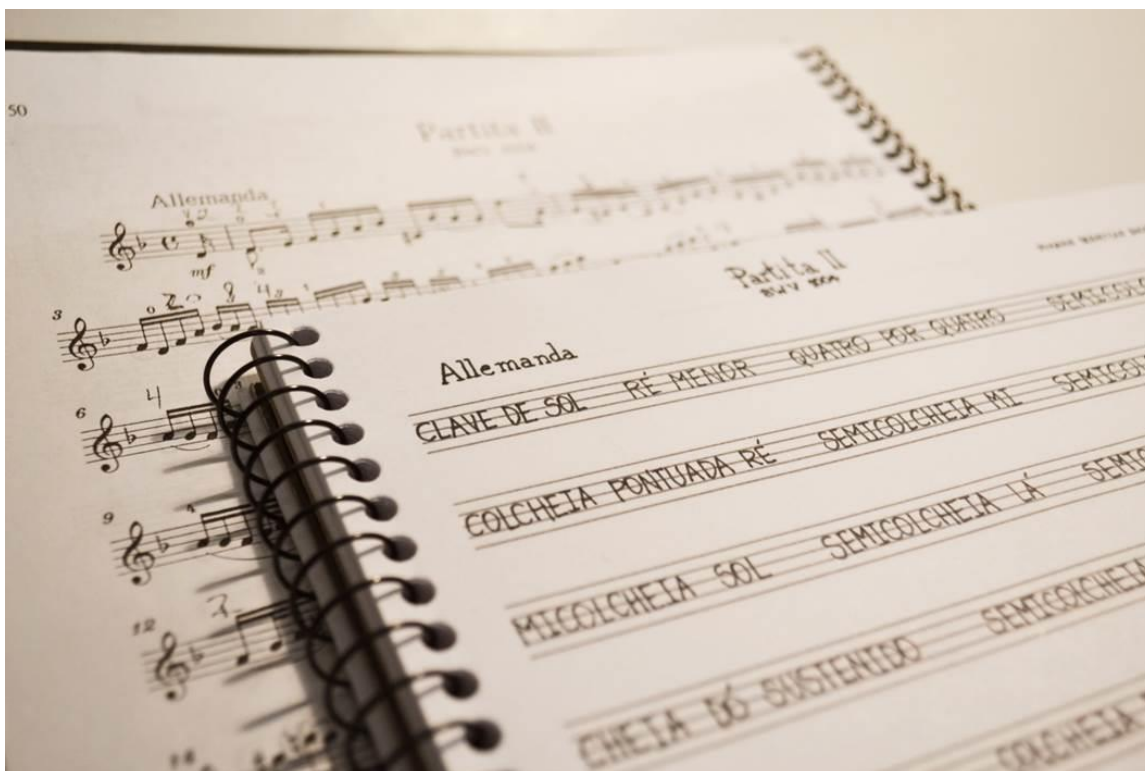 50
Partita II
Allemanda
mf
3
6
9
12
Partita II
BWV 1004
Allemanda
CLAVE DE SOL RÉ MENOR QUATRO POR QUATRO
COLCHEIA PONTUADA RÉ SEMICOLCHEIA MI
MICOLCHEIA SOL SEMICOLCHEIA LÁ
CHEIA DÓ SUSTENIDO SEMICOLCHEIA
COLCHEIA